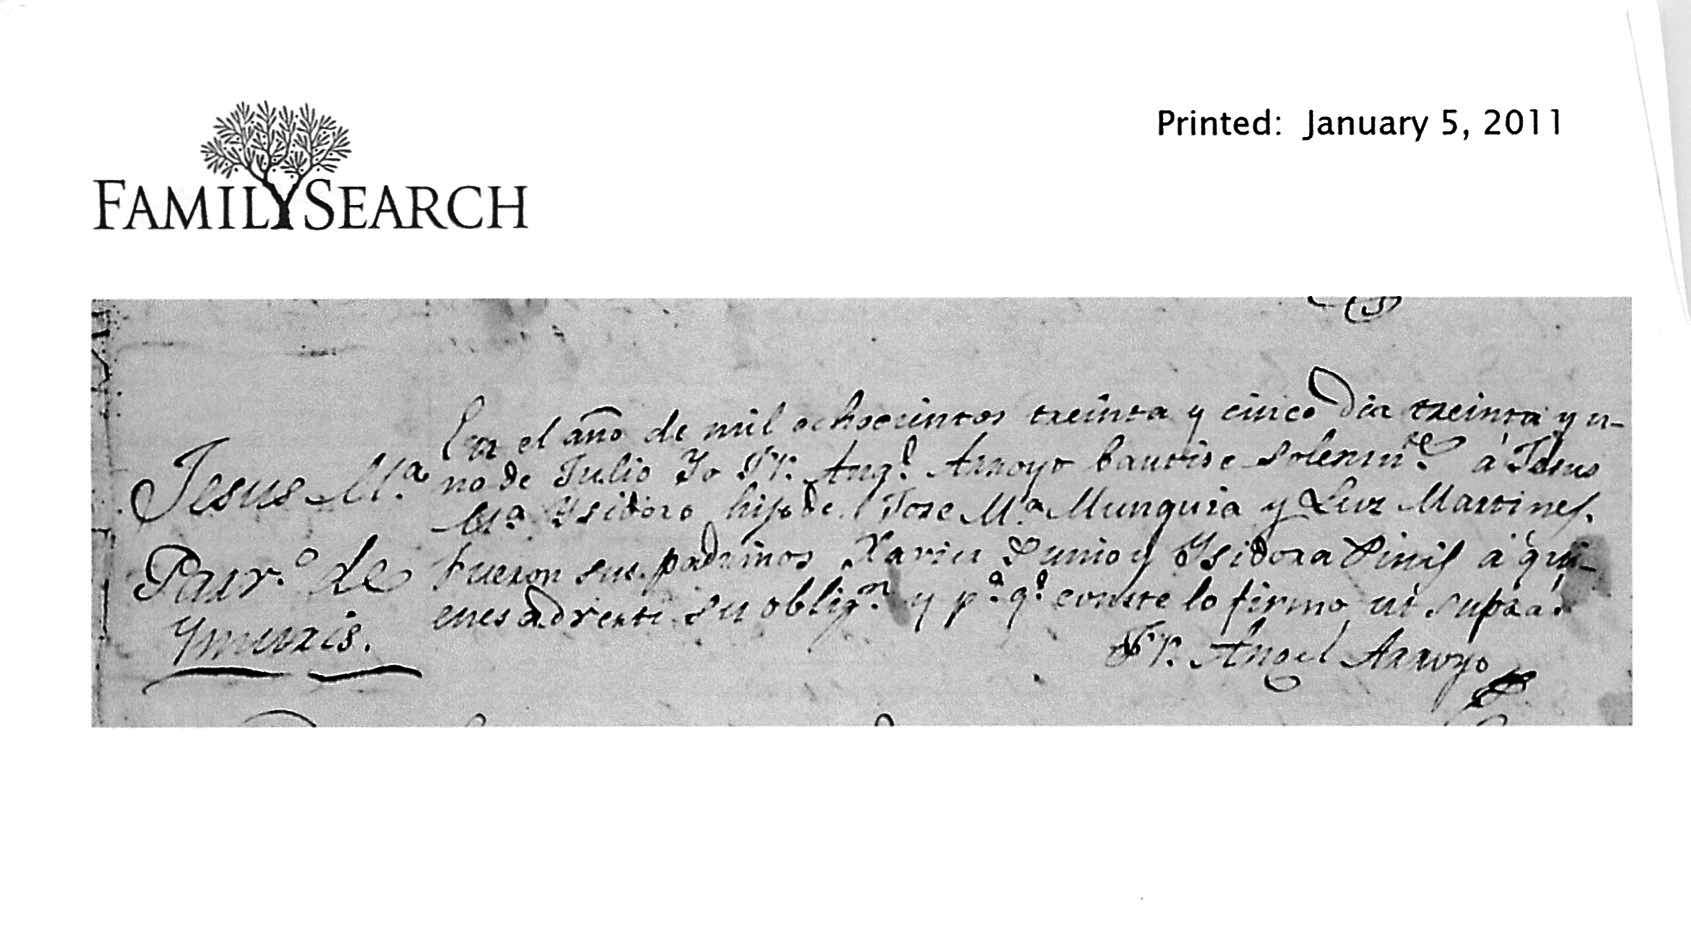 Printed: January 5, 2011
FAMILYSEARCH
En el año de mil ochocientos treinta y cinco dia treinta y u-
no de Julio Yo Fr. Angl. Arroyo bautise solemnte. á Jesus
Ma. Ysidoro hijo de Jose Ma. Munguia y Luz Martines.
fueron sus padrinos Xavier y Ysidora á qui-
enes adverti su oblign. y pa. qe. conste lo firmo ut supra.
Fr. Angel Arroyo
Jesus Ma.
Parro. de
Ymuris.